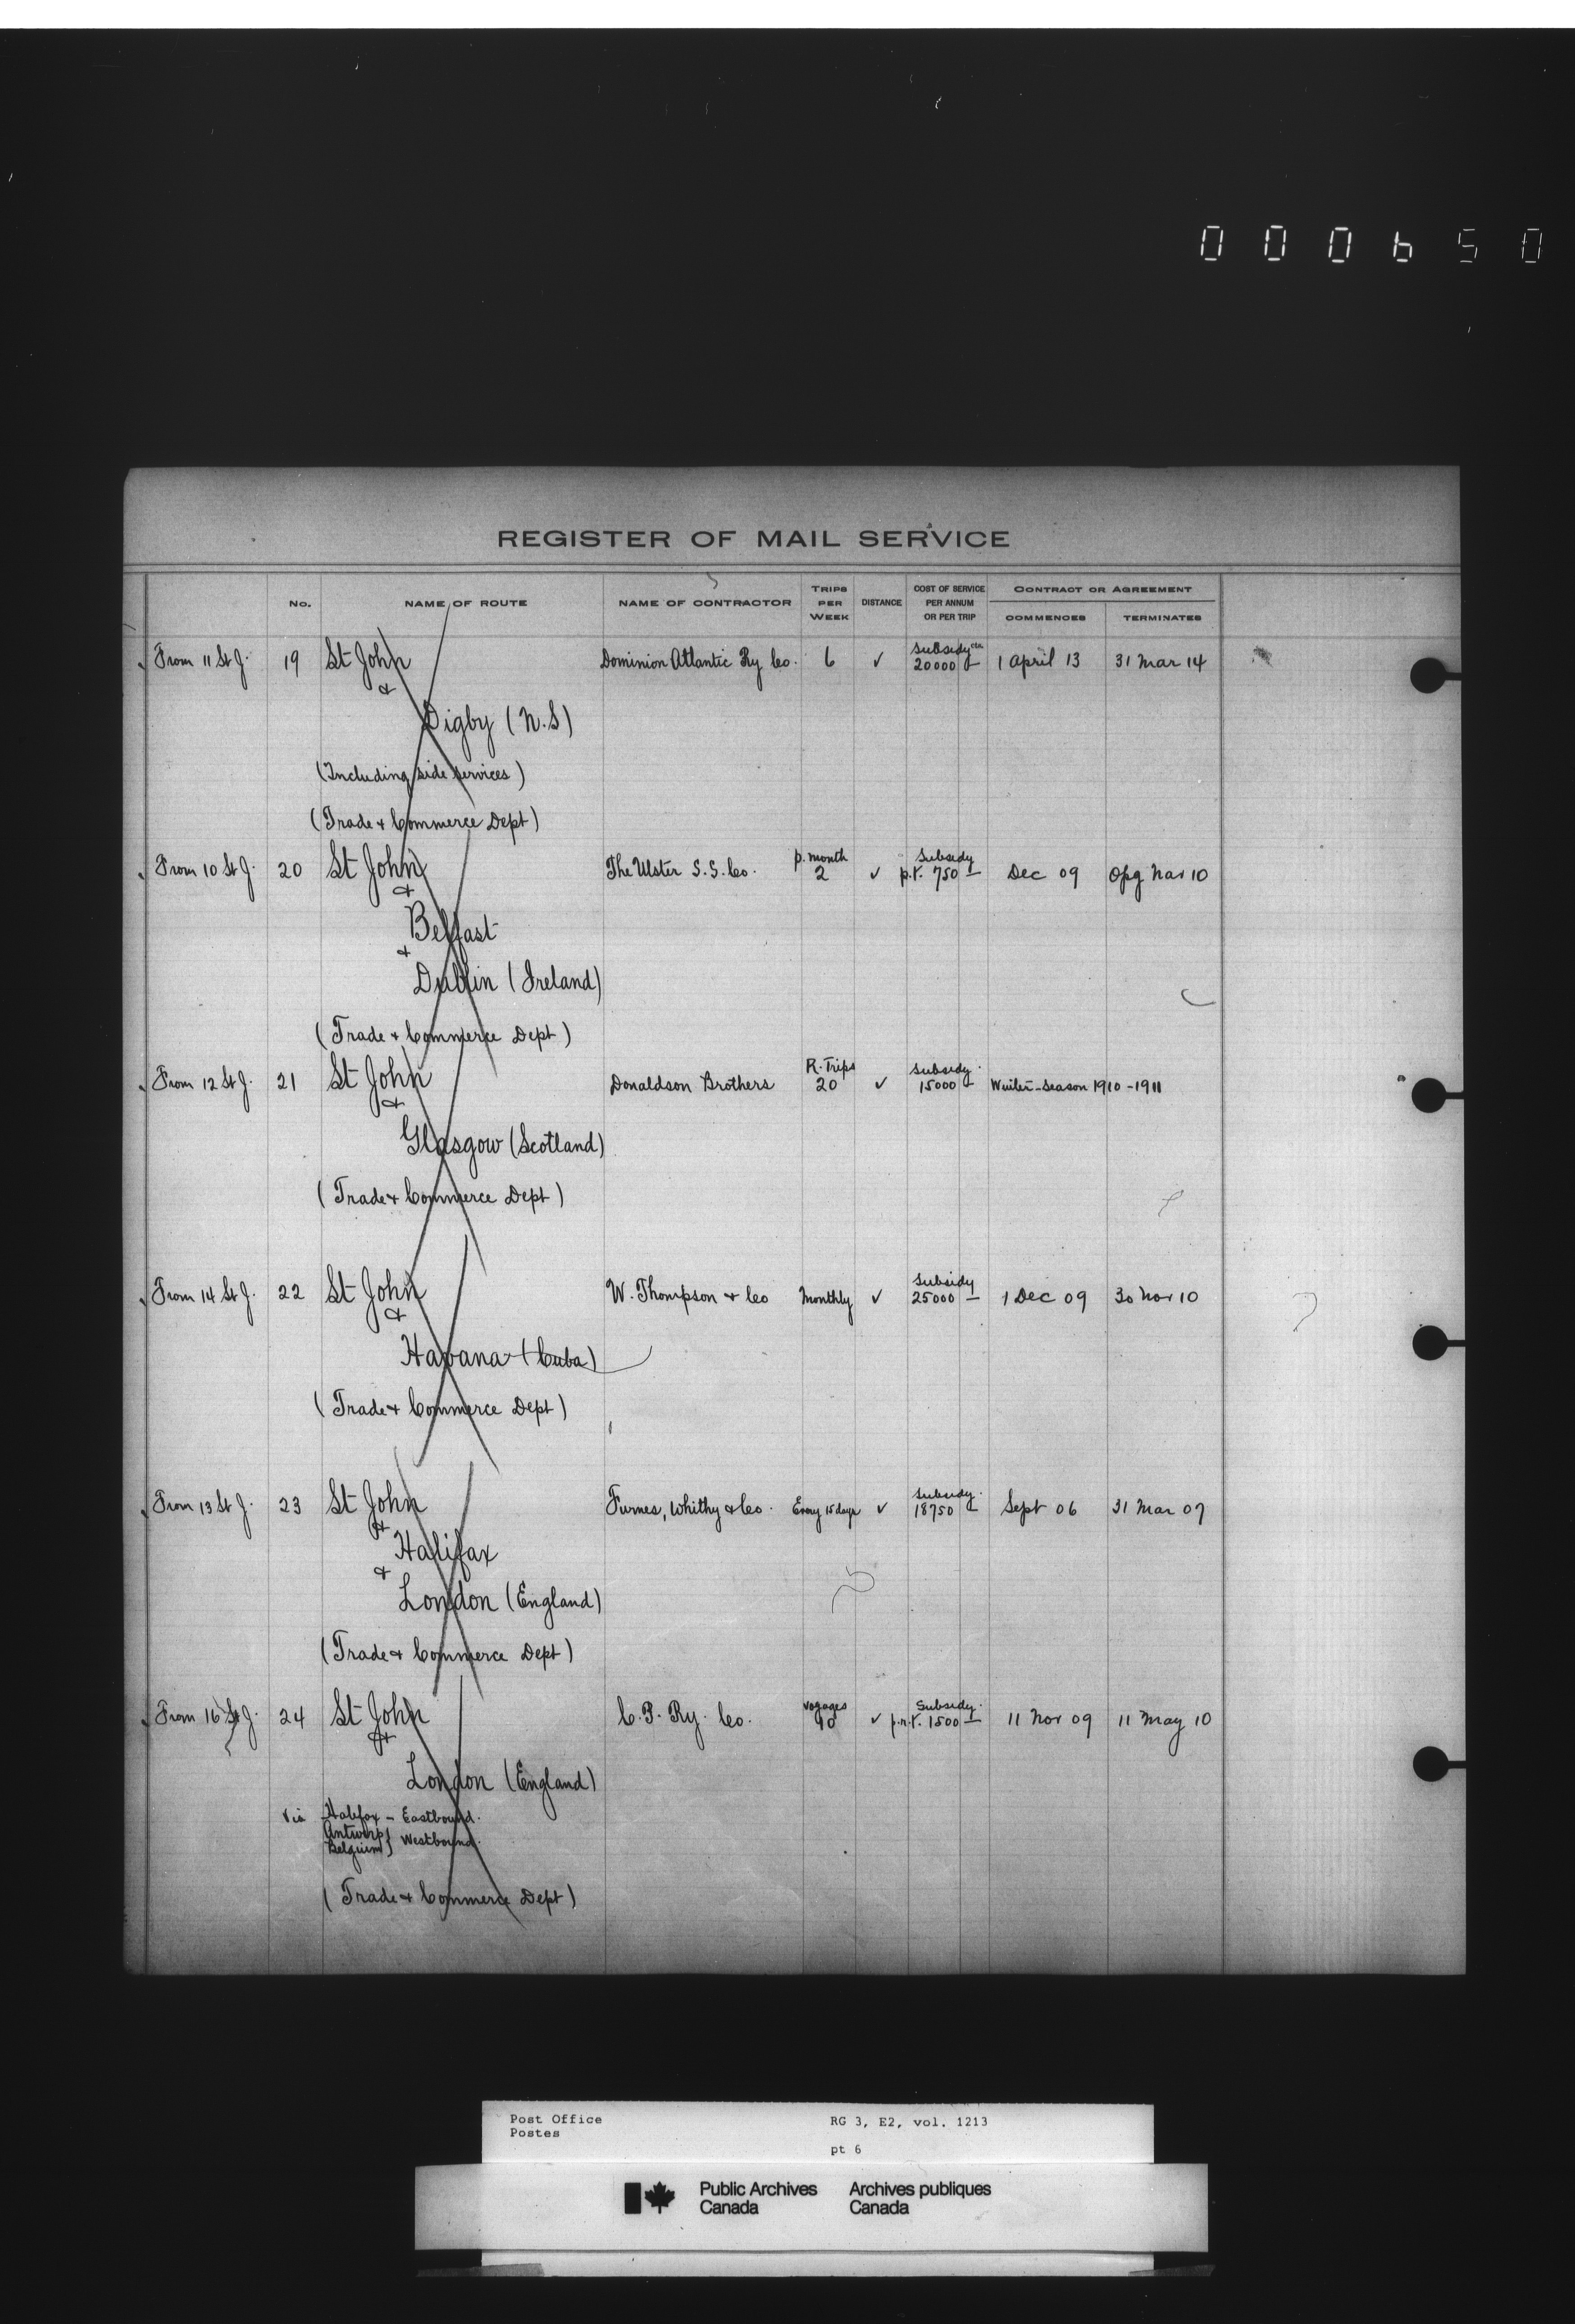 000650
REGISTER OF MAIL SERVICE
No. NAME OF ROUTE NAME OF CONTRACTOR TRIPS PER WEEK DISTANCE COST OF SERVICE PER ANNUM OR PER TRIP CONTRACT OR AGREEMENT COMMENCES TERMINATES
From 11 St J. 19 St John Dominion Atlantic Ry Co. 6 ✓ Subsidy 20000 — 1 April 13 31 Mar 14
&
Digby (N.S)
(Including side services)
(Trade & Commerce Dept)
From 10 St J. 20 St John The Ulster S.S. Co. p. month 2 ✓ Subsidy p.t. 750 — Dec 09 Opg Nav 10
&
Belfast
&
Dublin (Ireland)
(Trade & Commerce Dept)
From 12 St J. 21 St John Donaldson Brothers R. Trips 20 ✓ Subsidy. 15000 — Winter-Season 1910-1911
&
Glasgow (Scotland)
(Trade & Commerce Dept)
From 14 St J. 22 St John W. Thompson & Co Monthly ✓ Subsidy 25000 — 1 Dec 09 30 Nov 10
&
Havana (Cuba)
(Trade & Commerce Dept)
From 13 St J. 23 St John Furnes, Whithy & Co. Every 15 days ✓ Subsidy. 18750 — Sept 06 31 Mar 07
&
Halifax
&
London (England)
(Trade & Commerce Dept)
From 16 St J. 24 St John C.P. Ry. Co. voyages 10 ✓ Subsidy. p.r.t. 1500 — 11 Nov 09 11 May 10
&
London (England)
Via Halifax - Eastbound.
Antwerp Belgium } Westbound.
(Trade & Commerce Dept)
Post Office RG 3, E2, vol. 1213
Postes
pt 6
Public Archives Archives publiques
Canada Canada